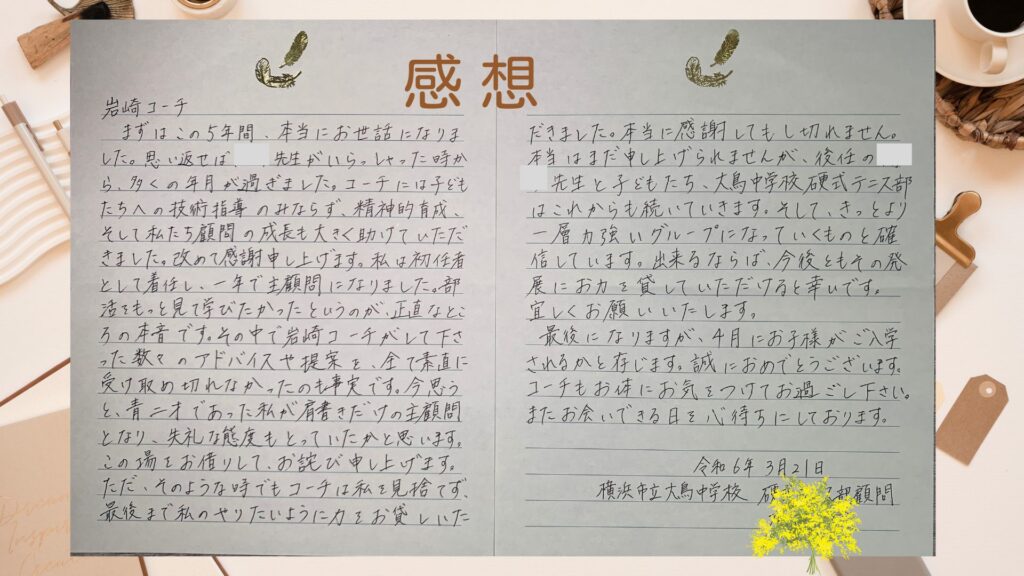 感想
岩崎コーチ
まずはこの5年間、本当にお世話になりま
した。思い返せば 先生がいらっしゃった時か
ら、多くの年月が過ぎました。コーチには子ども
たちへの技術指導のみならず、精神的育成、
そして私たち顧問の成長も大きく助けていただ
きました。改めて感謝申し上げます。私は初任者
として着任し、一年で主顧問になりました。部
活をもっと見て学びたかったというのが、正直なとこ
ろの本音です。その中で岩崎コーチがして下さ
った数々のアドバイスや提案を、全て素直に
受け取め切れなかったのも事実です。今思う
と、青二才であった私が肩書きだけの主顧問
となり、失礼な態度もとっていたかと思います。
この場をお借りして、お詫び申し上げます。
ただ、そのような時でもコーチは私を見捨てず、
最後まで私のやりたいように力をお貸しいた
だきました。本当に感謝してもし切れません。
本当はまだ申し上げられませんが、後任の
先生と子どもたち、大鳥中学校硬式テニス部
はこれからも続いていきます。そして、きっとより
一層力強いグループになっていくものと確
信しています。出来るならば、今後ともその発
展にお力を貸していただけると幸いです。
宜しくお願いいたします。
最後になりますが、4月にお子様がご入学
されるかと存じます。誠におめでとうございます。
コーチもお体にお気をつけてお過ごし下さい。
またお会いできる日を心待ちにしております。
令和6年3月21日
横浜市立大鳥中学校 硬 部顧問